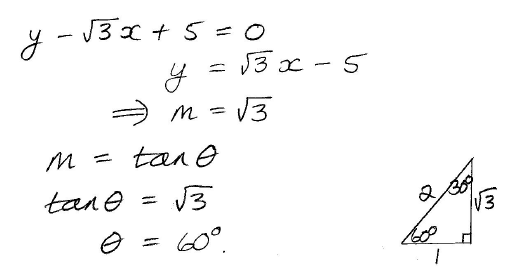 y - √3x + 5 = 0
y = √3x - 5
⇒ m = √3
m = tanθ
tanθ = √3
θ = 60°.
2
30°
√3
60°
1